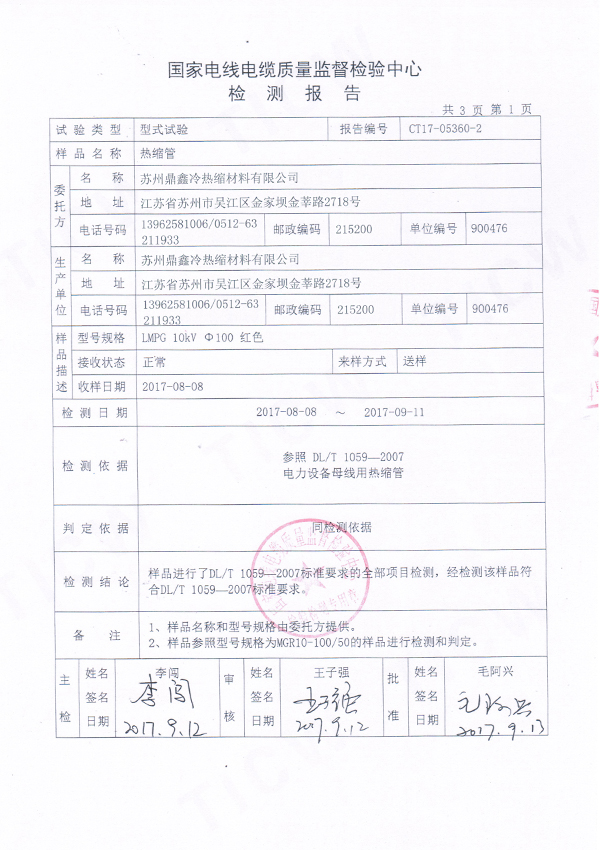 国家电线电缆质量监督检验中心
检 测 报 告
共 3 页 第 1 页
试 验 类 型 型式试验 报告编号 CT17-05360-2
样 品 名 称 热缩管
委托方
名 称 苏州鼎鑫冷热缩材料有限公司
地 址 江苏省苏州市吴江区金家坝金莘路2718号
电话号码 13962581006/0512-63
211933 邮政编码 215200 单位编号 900476
生产单位
名 称 苏州鼎鑫冷热缩材料有限公司
地 址 江苏省苏州市吴江区金家坝金莘路2718号
电话号码 13962581006/0512-63
211933 邮政编码 215200 单位编号 900476
样品描述
型号规格 LMPG 10kV Φ100 红色
接收状态 正常 来样方式 送样
收样日期 2017-08-08
检 测 日 期 2017-08-08 ～ 2017-09-11
检 测 依 据 参照 DL/T 1059—2007
电力设备母线用热缩管
判 定 依 据 同检测依据
检 测 结 论 样品进行了DL/T 1059—2007标准要求的全部项目检测，经检测该样品符
合DL/T 1059—2007标准要求。
备 注 1、样品名称和型号规格由委托方提供。
2、样品参照型号规格为MGR10-100/50的样品进行检测和判定。
主检 姓名 李闯 审核 姓名 王子强 批准 姓名 毛阿兴
签名 李闯 签名 王子强 签名 毛阿兴
日期 2017.9.12 日期 2017.9.12 日期 2017.9.13